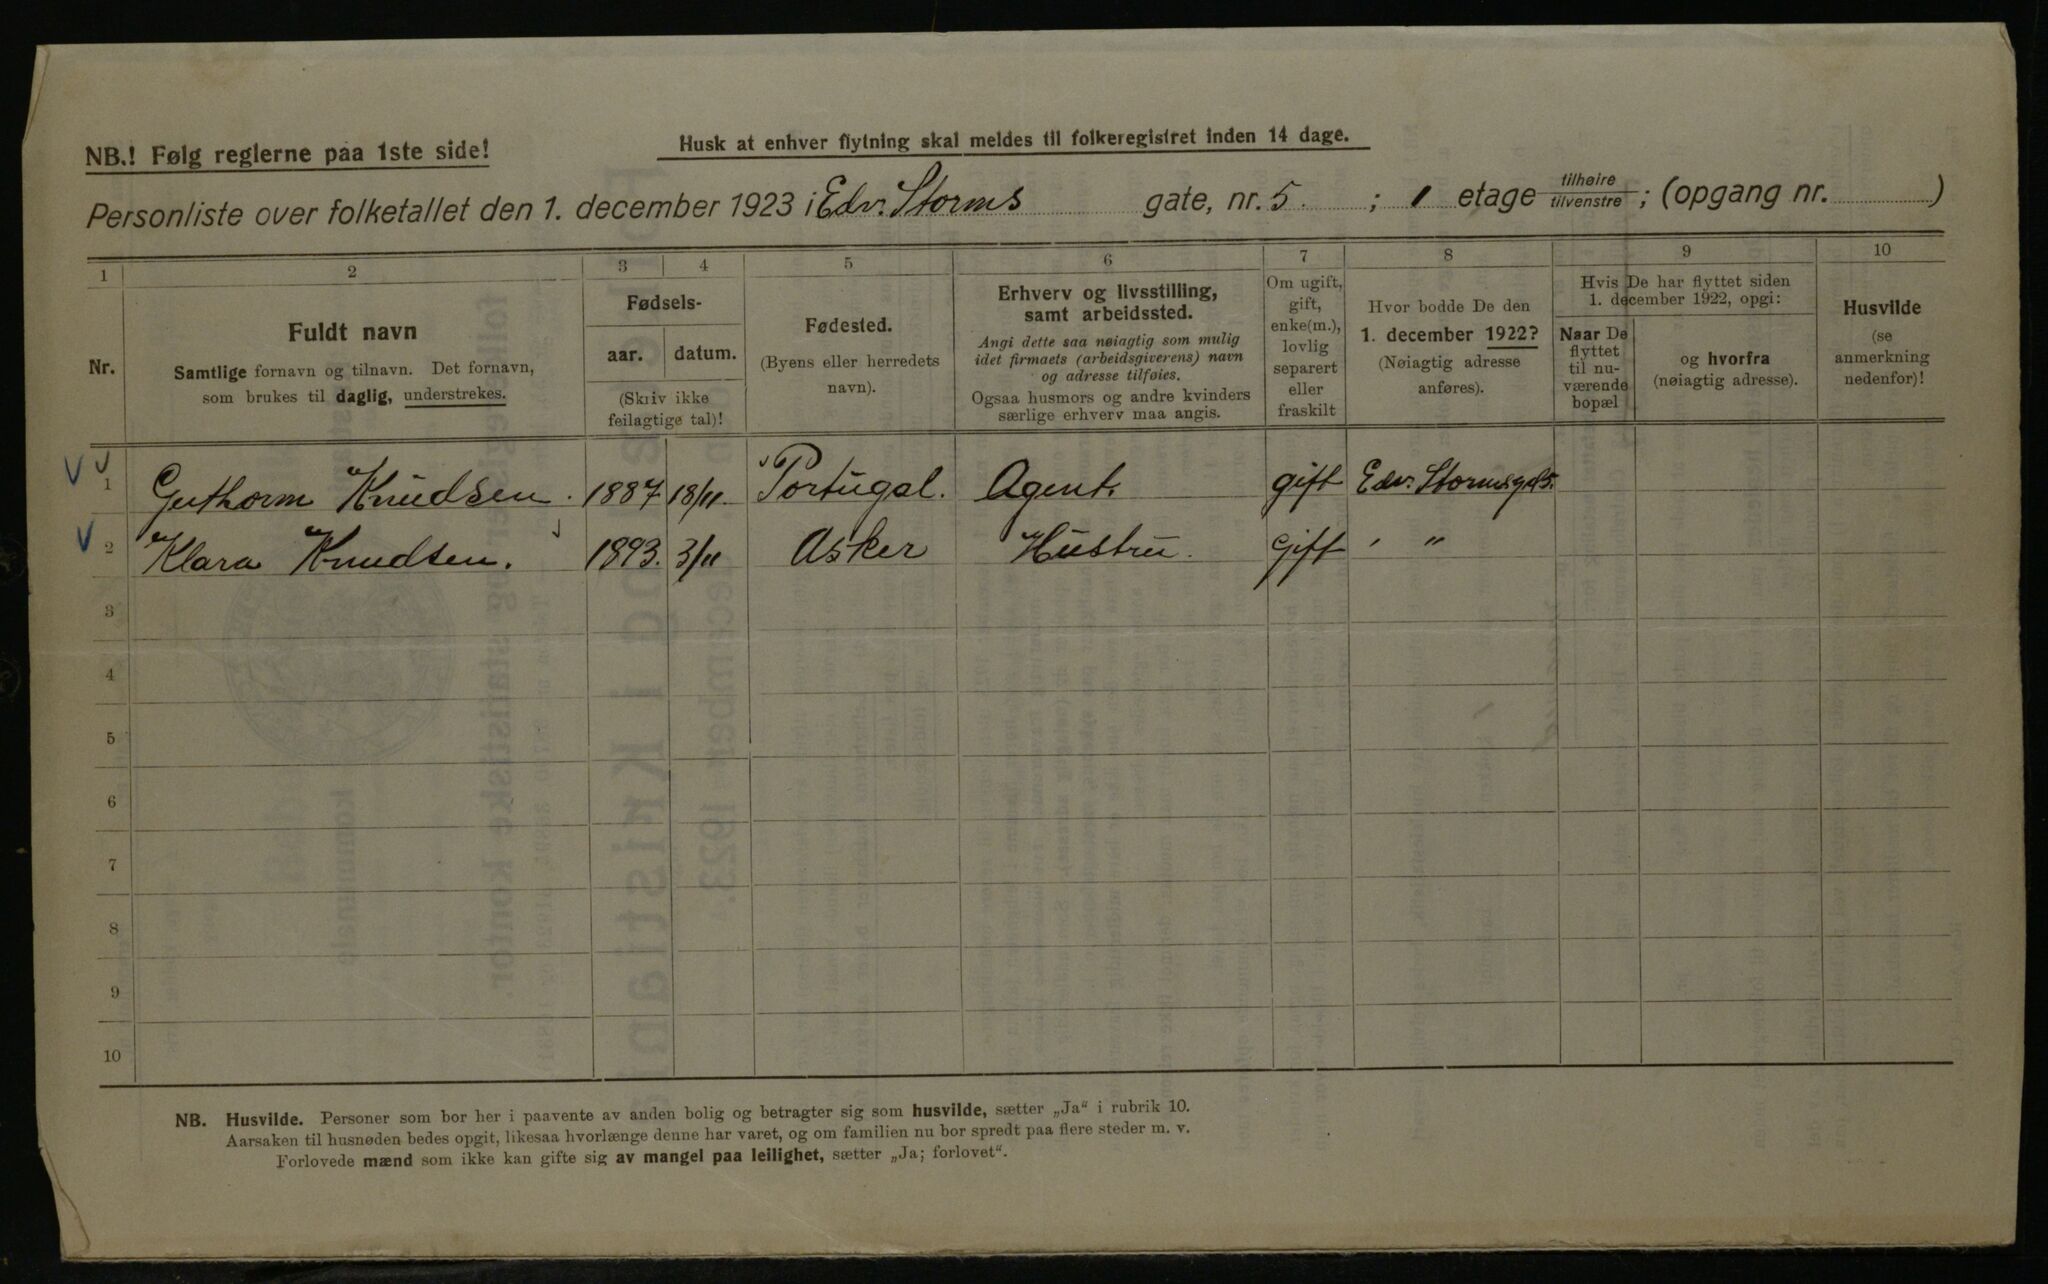 NB.! Følg reglerne paa 1ste side!
Husk at enhver flytning skal meldes til folkeregistret inden 14 dage.
Personliste over folketallet den 1. december 1923 i Edv. Storms gate, nr. 5. ; 1 etage tilhøire/tilvenstre ; (opgang nr. )
1 2 3 4 5 6 7 8 9 10
Nr.
Fuldt navn
Samtlige fornavn og tilnavn. Det fornavn,
som brukes til daglig, understrekes.
Fødsels-
aar. datum.
(Skriv ikke
feilagtige tal)!
Fødested.
(Byens eller herredets
navn).
Erhverv og livsstilling,
samt arbeidssted.
Angi dette saa nøiagtig som mulig
idet firmaets (arbeidsgiverens) navn
og adresse tilføies.
Ogsaa husmors og andre kvinders
særlige erhverv maa angis.
Om ugift,
gift,
enke(m.),
lovlig
separert
eller
fraskilt
Hvor bodde De den
1. december 1922?
(Nøiagtig adresse
anføres).
Hvis De har flyttet siden
1. december 1922, opgi:
Naar De
flyttet
til nu-
værende
bopæl
og hvorfra
(nøiagtig adresse).
Husvilde
(se
anmerkning
nedenfor)!
1 Guthorm Knudsen. 1887 18/11. Portugal. Agent. gift Edv. Stormsgt 5.
2 Klara Knudsen. 1893. 3/11 Asker Hustru. Gift " "
3
4
5
6
7
8
9
10
NB. Husvilde. Personer som bor her i paavente av anden bolig og betragter sig som husvilde, sætter „Ja“ i rubrik 10.
Aarsaken til husnøden bedes opgit, likesaa hvorlænge denne har varet, og om familien nu bor spredt paa flere steder m. v.
Forlovede mænd som ikke kan gifte sig av mangel paa leilighet, sætter „Ja; forlovet“.